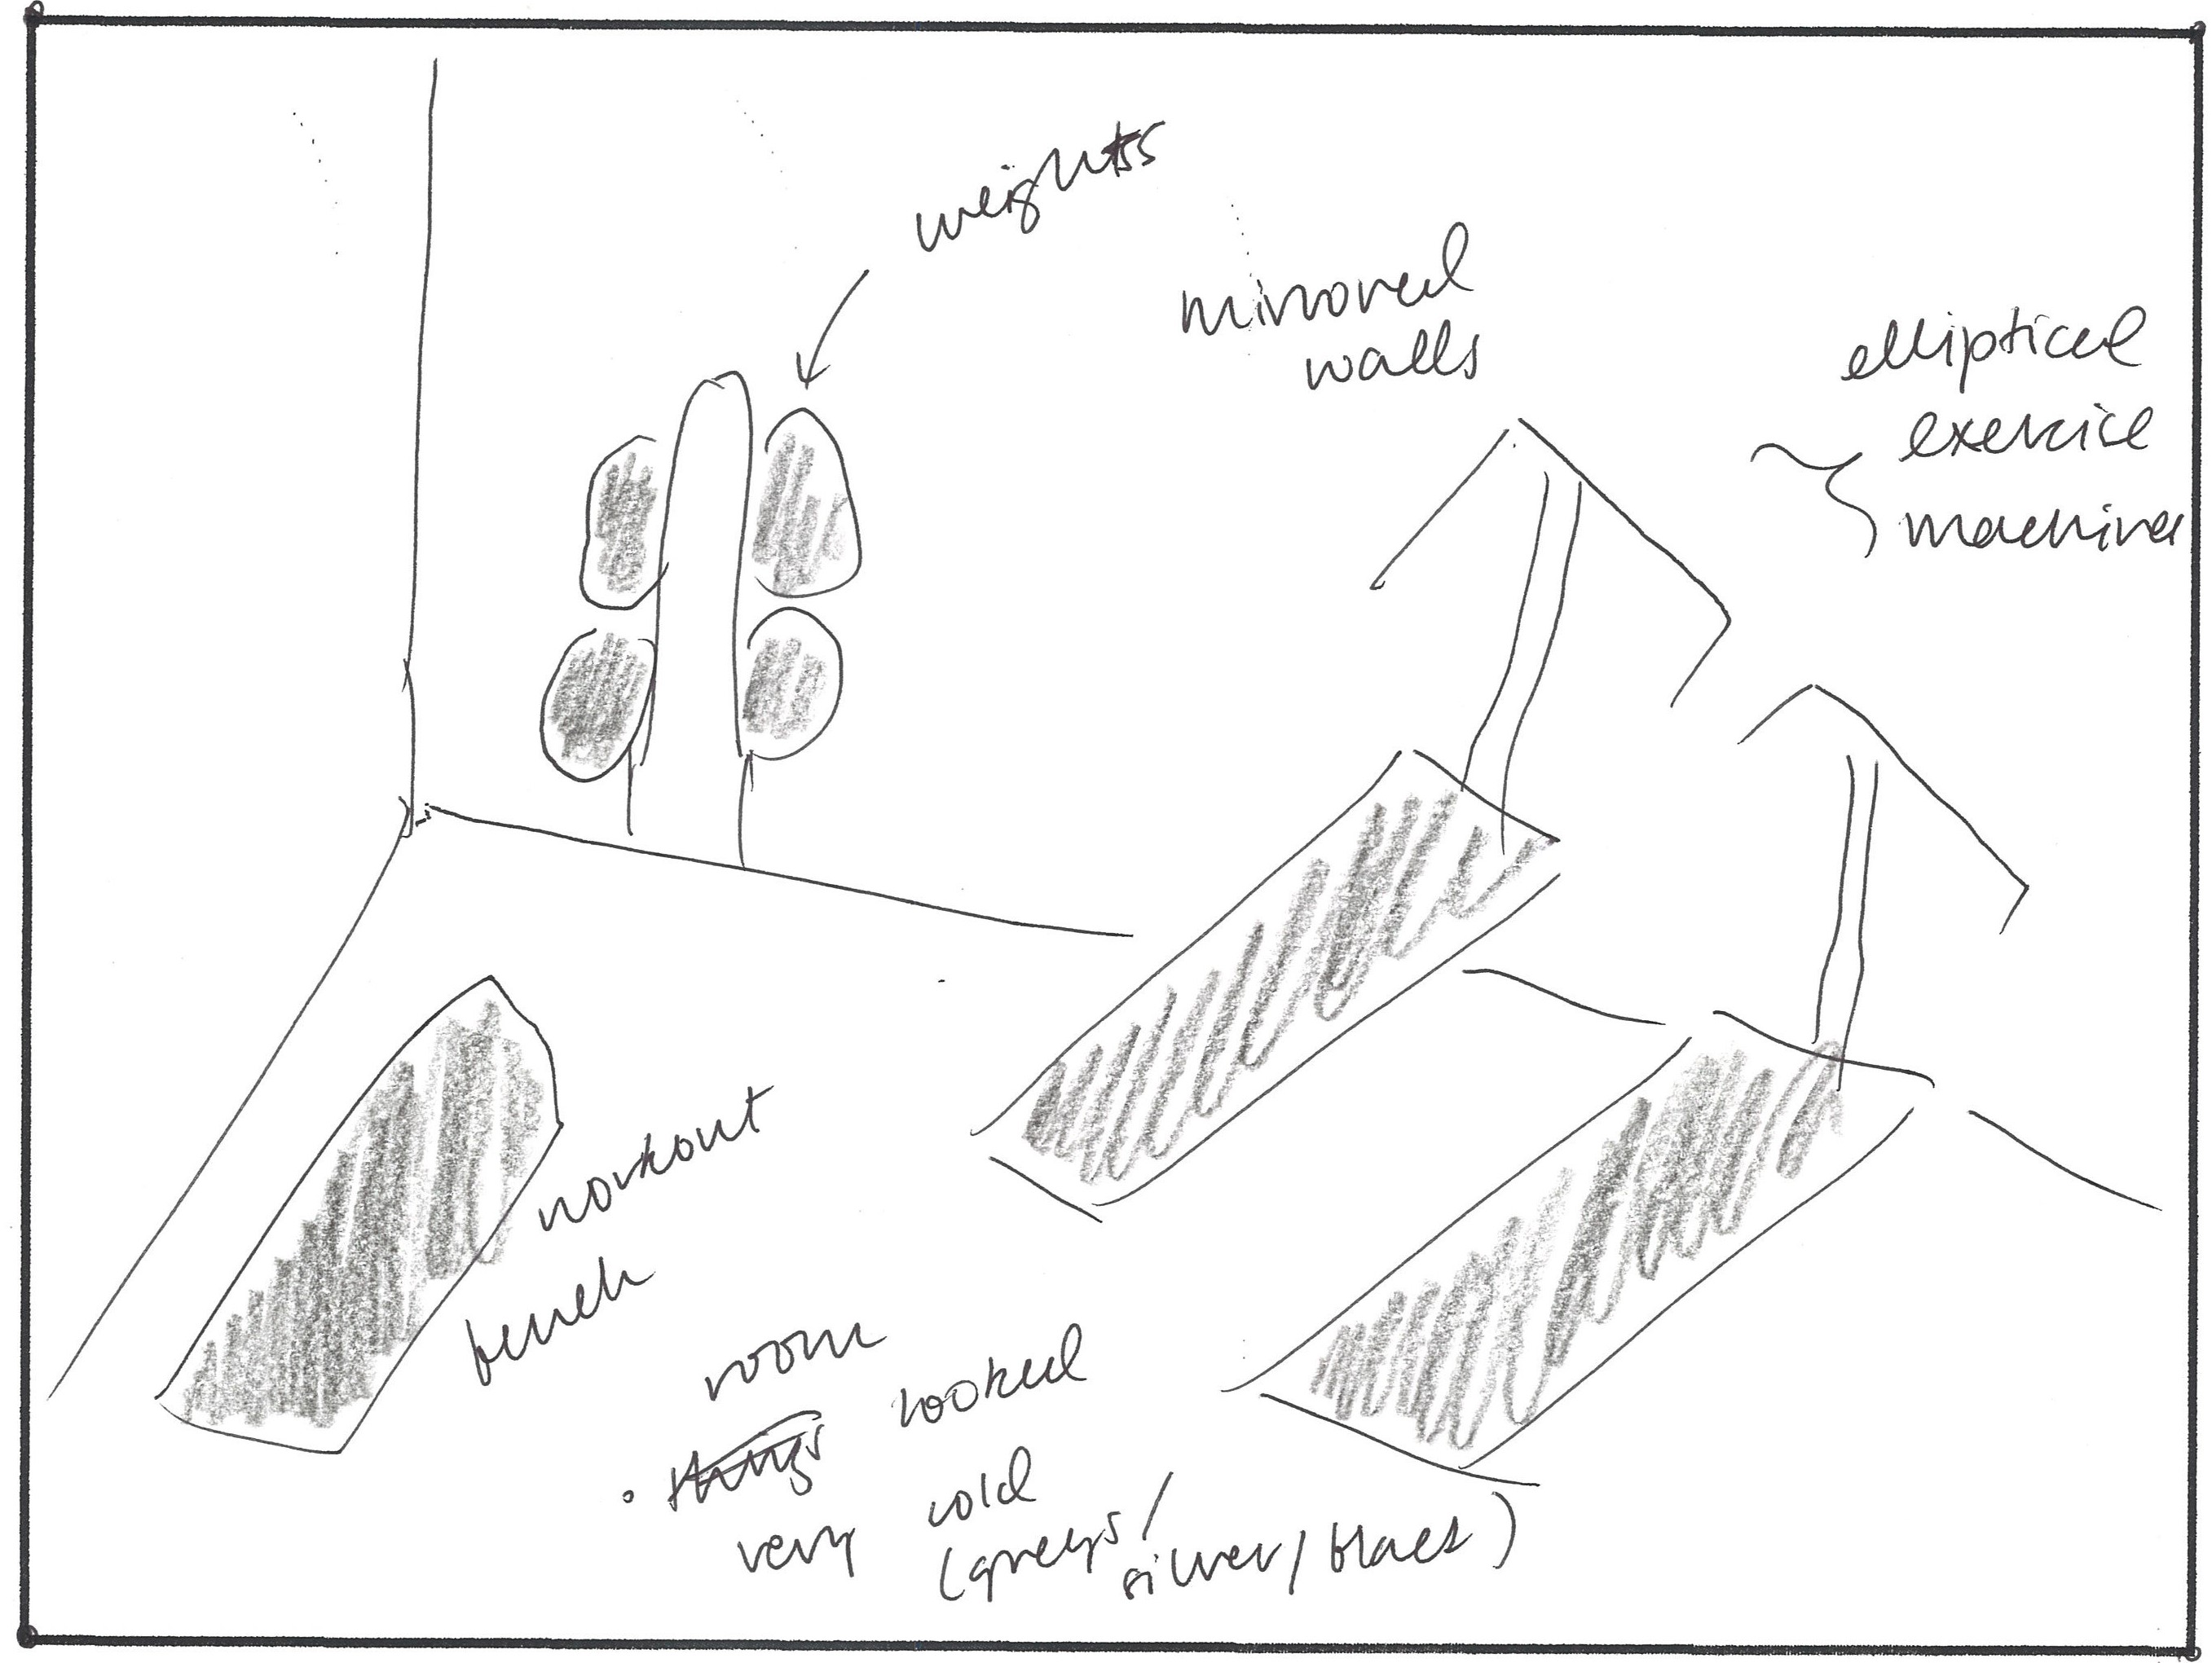 weights
mirrored
walls
elliptical
exercise
machines
workout
bench
room
• things looked
very cold
(greys/
silver/black)